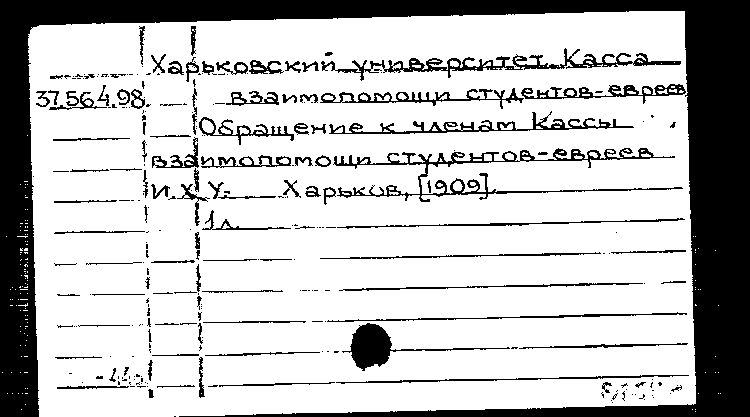 Харьковский университет. Касса
37.564.98 взаимопомощи студентов-евреев
Обращение к членам Кассы
взаимопомощи студентов-евреев
И.Х.У.- Харьков, [1909].
1л.